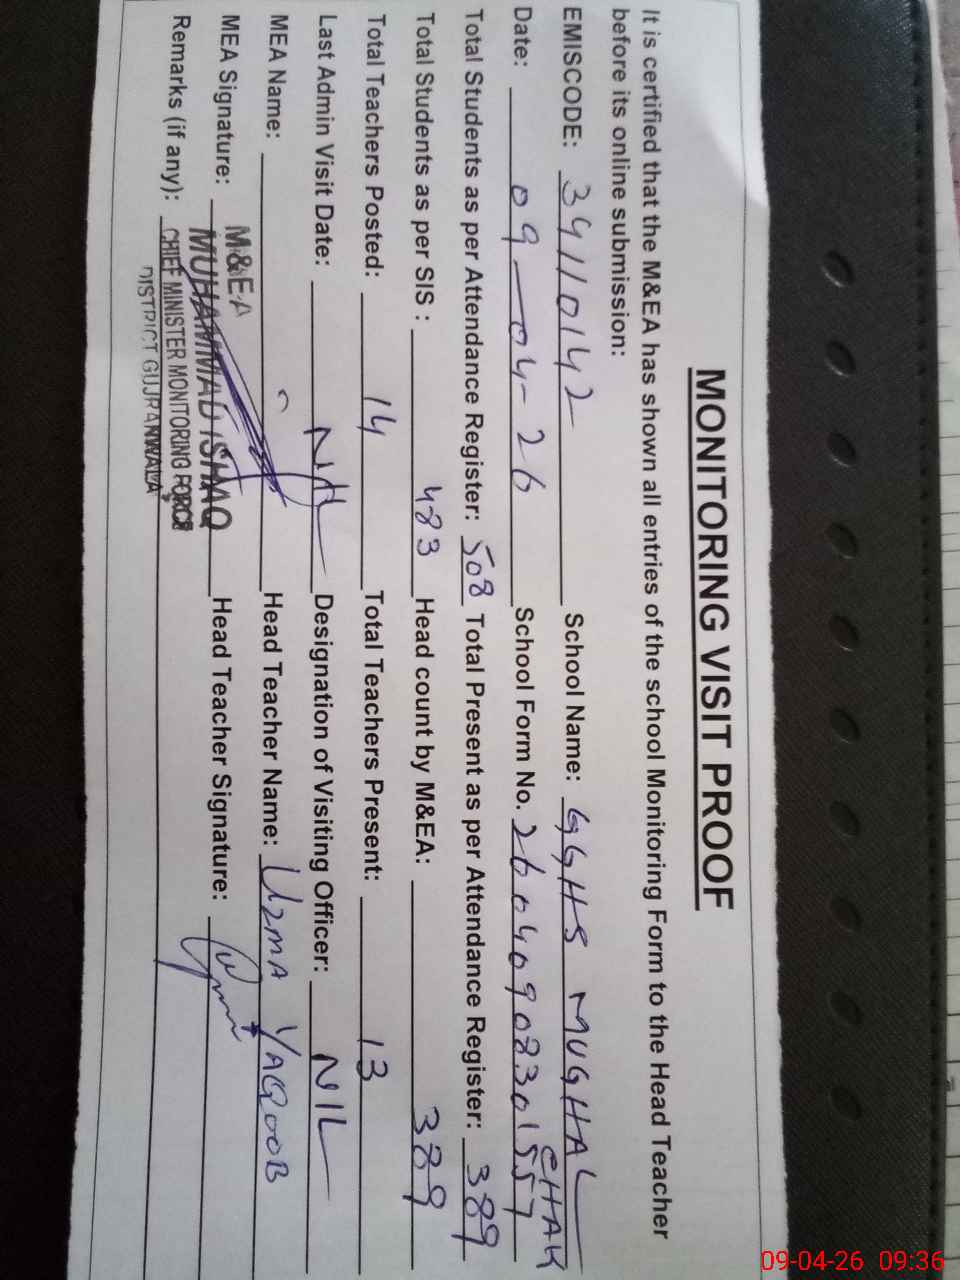 MONITORING VISIT PROOF
It is certified that the M&EA has shown all entries of the school Monitoring Form to the Head Teacher
before its online submission:
EMISCODE: 34110142 School Name: GGHS MUGHAL CHAK
Date: 09-04-26 School Form No. 26040908301557
Total Students as per Attendance Register: 508 Total Present as per Attendance Register: 389
Total Students as per SIS : 483 Head count by M&EA: 389
Total Teachers Posted: 14 Total Teachers Present: 13
Last Admin Visit Date: NIL Designation of Visiting Officer: NIL
MEA Name: Head Teacher Name: UZMA YAQOOB
MEA Signature: Head Teacher Signature:
Remarks (if any):
M&EA
MUHAMMAD ISHAQ
CHIEF MINISTER MONITORING FORCE
DISTRICT GUJRANWALA
09-04-26 09:36